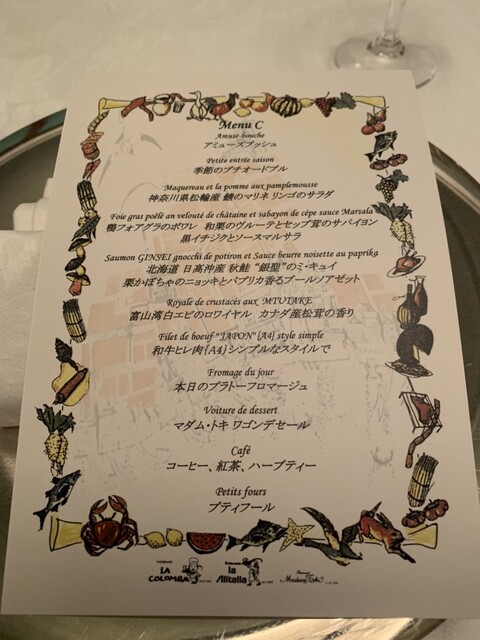 Menu C
Amuse-bouche
アミューズブッシュ
Petite entrée saison
季節のプチオードブル
Maquereau et la pomme aux pamplemousse
神奈川県松輪産 鯖のマリネ リンゴのサラダ
Foie gras poêlé an velouté de châtaine et sabayon de cèpe sauce Marsala
鴨フォアグラのポワレ 和栗のヴルーテとセップ茸のサバイヨン
黒イチジクとソースマルサラ
Saumon GINSEI gnocchi de potiron et Sauce beurre noisette au paprika
北海道 日高沖産 秋鮭 "銀聖"のミ・キュイ
栗かぼちゃのニョッキとパプリカ香るブールノアゼット
Royale de crustacés aux MTUTAKE
富山湾白エビのロワイヤル カナダ産松茸の香り
Filet de boeuf "JAPON" {A4} style simple
和牛ヒレ肉{A4}シンプルなスタイルで
Fromage du jour
本日のプラトーフロマージュ
Voiture de dessert
マダム・トキ ワゴンデセール
Café
コーヒー、紅茶、ハーブティー
Petits fours
プティフール
LA COLOMBA
la Alitalia
Madame Toki